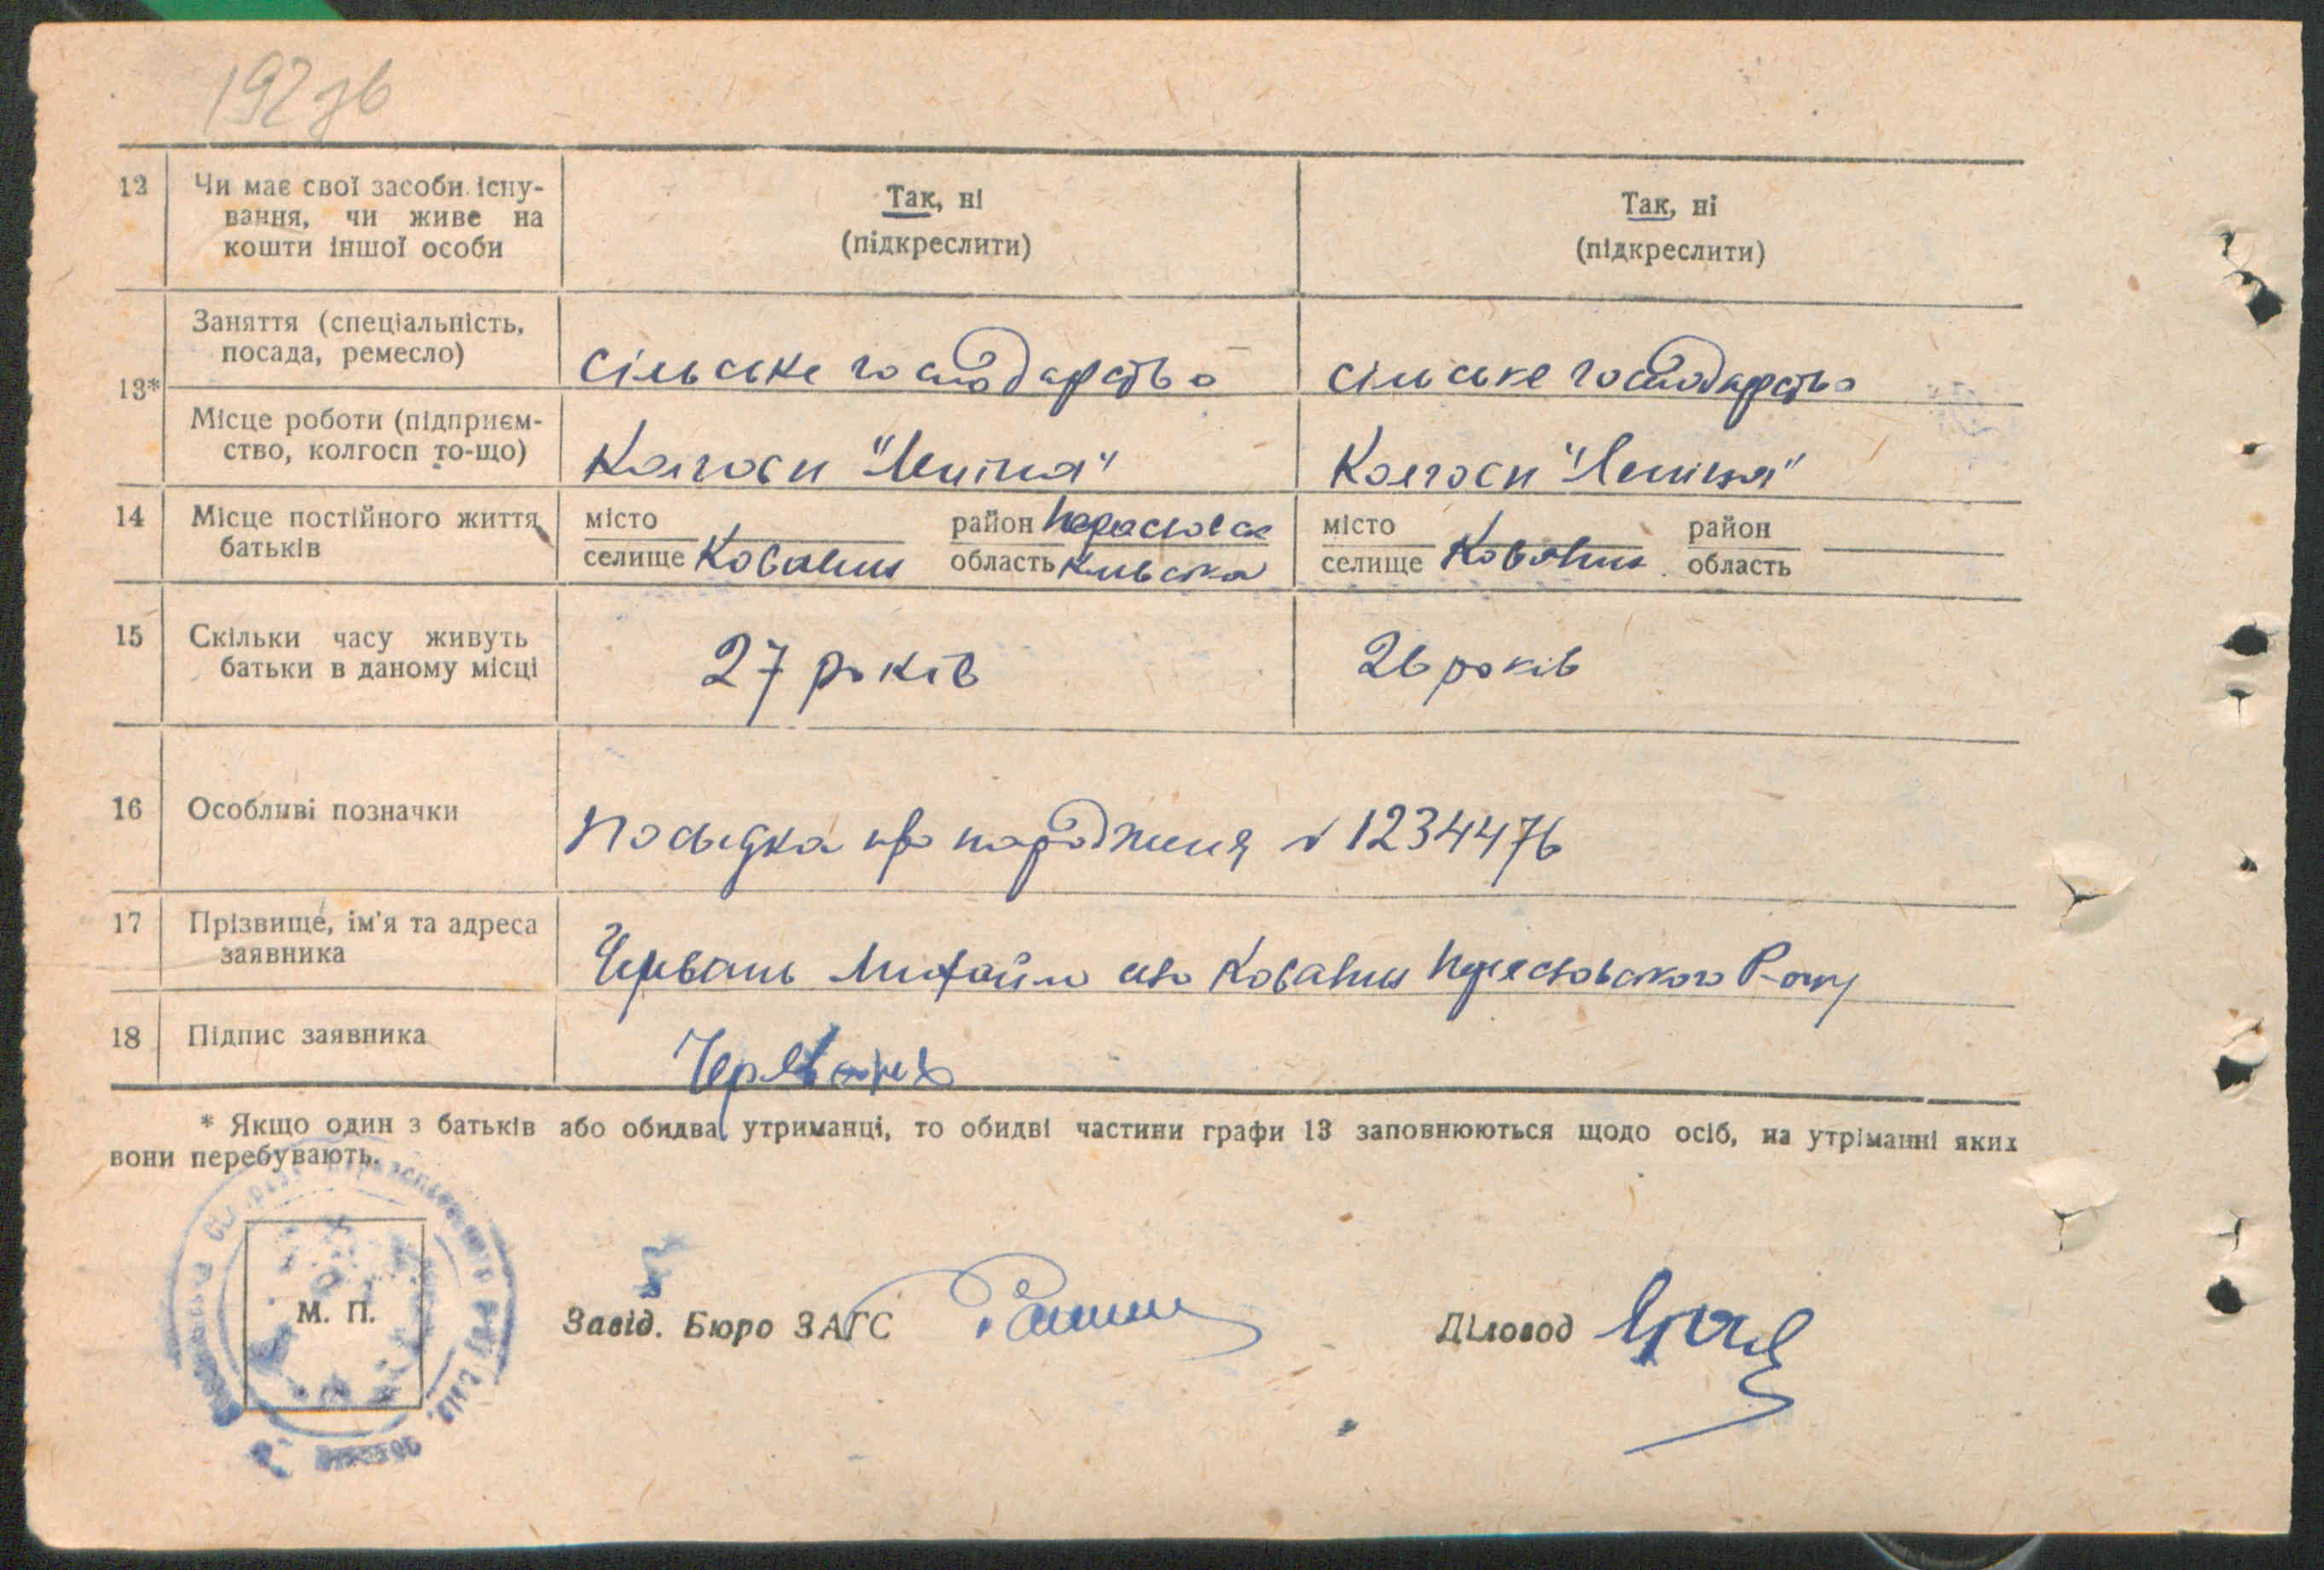 192зв
12 Чи має свої засоби існу-
вання, чи живе на
кошти іншої особи
Так, ні
(підкреслити)
Так, ні
(підкреслити)
13*
Заняття (спеціальність,
посада, ремесло)
сільське господарство
сільське господарство
Місце роботи (підприєм-
ство, колгосп то-що)
Колгосп "Леніна"
Колгосп "Леніна"
14 Місце постійного життя
батьків
місто район
селище Ковалин область Київська
місто район
селище Ковалин область
15 Скільки часу живуть
батьки в даному місці
27 років
26 років
16 Особливі позначки
Посвідка про народження № 1234476
17 Прізвище, ім'я та адреса
заявника
Червань Михайло село Ковалин Р-ону
18 Підпис заявника
* Якщо один з батьків або обидва утриманці, то обидві частини графи 13 заповнюються щодо осіб, на утріманні яких
вони перебувають.
М. П.
Завід. Бюро ЗАГС
Діловод